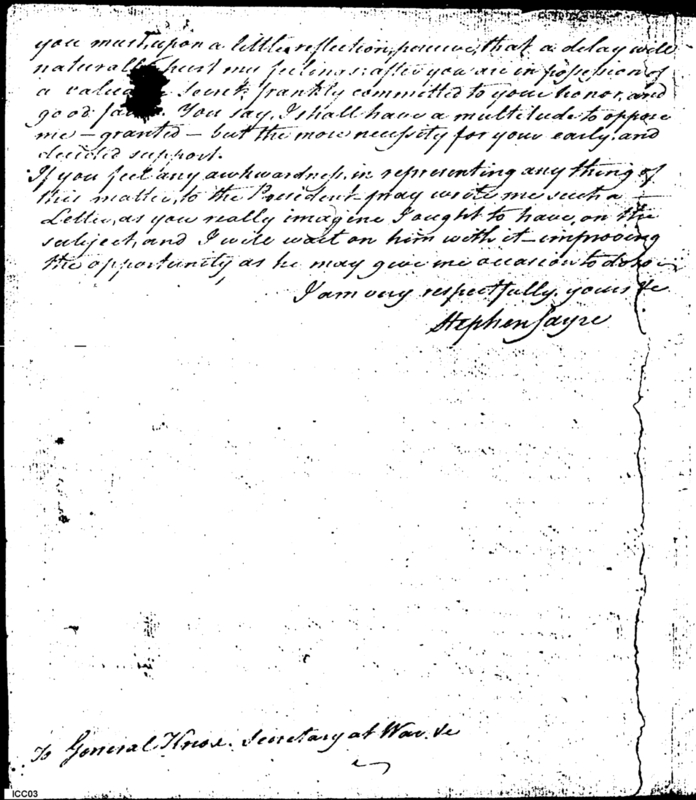 you must, upon a little reflection, perceive, that a delay will
naturally hurt my feelings: after you are in possession of
a valuable secret frankly committed to your honor, and
good faith. You say, I shall have a multitude to oppose
me — granted — but the more necessity for your early, and
decided support.
If you feel any awkwardness, in representing any thing of
this matter, to the President — pray write me such a
Letter, as you really imagine I ought to have, on the
subject, and I will wait on him with it — improving
the opportunity, as he may give me occasion to do so —
I am very respectfully yours &c
Stephen Sayre
To General Knox. Secretary at War. &c
ICC03